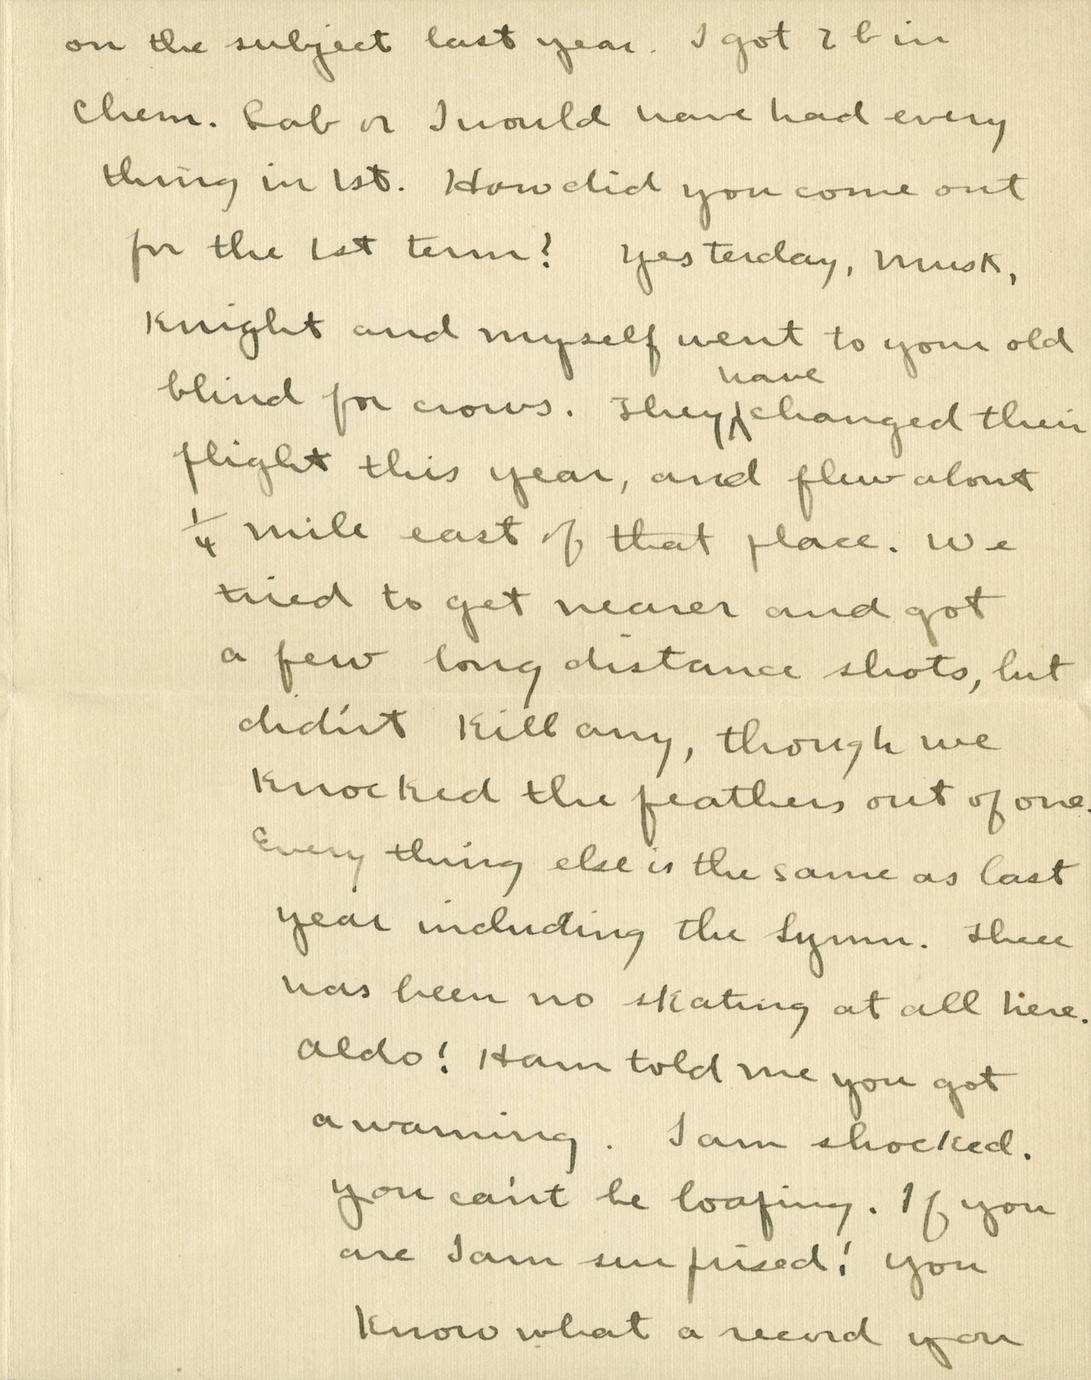 on the subject last year. I got 2 b in
Chem. Lab or I would have had every
thing in 1st. How did you come out
for the 1st term? Yesterday, Musk,
Knight and myself went to your old
blind for crows. They have changed their
flight this year, and flew about
1/4 mile east of that place. We
tried to get nearer and got
a few long distance shots, but
did'nt kill any, though we
knocked the feathers out of one.
Every thing else is the same as last
year including the Gymn. There
has been no skating at all here.
Aldo! Ham told me you got
a warning. I am shocked.
you ca'nt be loafing. If you
are I am surprised! you
know what a record you